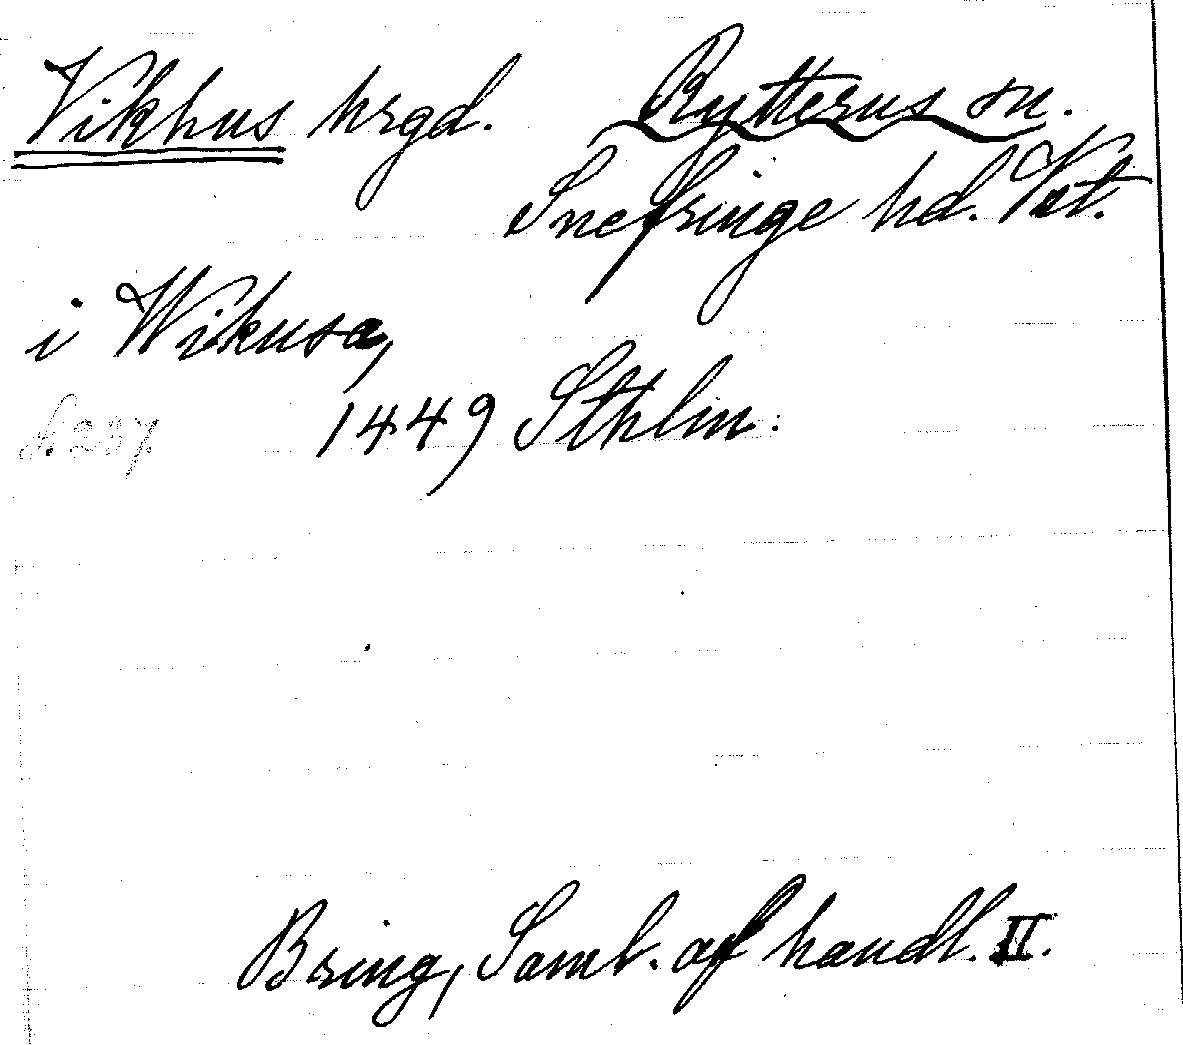 Vikhus hrgd. Rytterns sn.
Snefringe hd. Vst.
i Wikusa,
s. 237. 1449 Sthlm:
Bring, Saml. af handl. II.